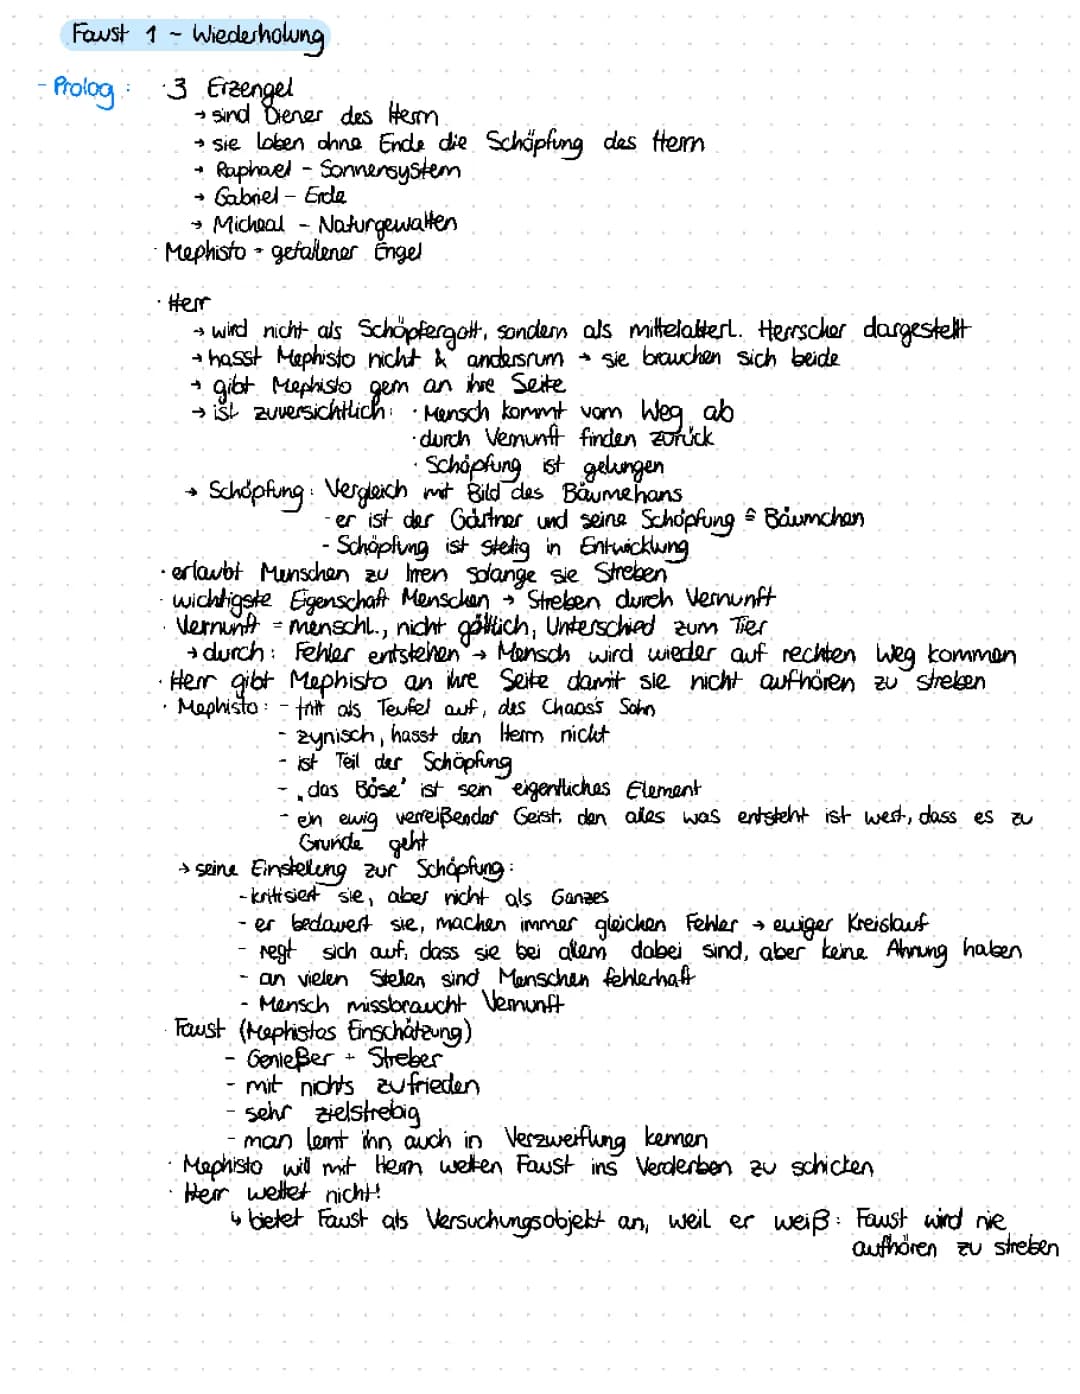 Faust 1 - Wiederholung
- Prolog : · 3 Erzengel
→ sind Diener des Herrn
→ sie loben ohne Ende die Schöpfung des Herrn
→ Raphael - Sonnensystem
→ Gabriel - Erde
→ Micheal - Naturgewalten
· Mephisto - gefallener Engel
· Herr
→ wird nicht als Schöpfergott, sondern als mittelalterl. Herrscher dargestellt
→ hasst Mephisto nicht & andersrum → sie brauchen sich beide
→ gibt Mephisto gern an ihre Seite
→ ist zuversichtlich: · Mensch kommt vom Weg ab
· durch Vernunft finden zurück
· Schöpfung ist gelungen
→ Schöpfung: Vergleich mit Bild des Bäumchens
- er ist der Gärtner und seine Schöpfung ≙ Bäumchen
- Schöpfung ist stetig in Entwicklung
· erlaubt Menschen zu Irren solange sie Streben
· wichtigste Eigenschaft Menschen → Streben durch Vernunft
· Vernunft = menschl., nicht göttlich, Unterschied zum Tier
→ durch: Fehler entstehen → Mensch wird wieder auf rechten Weg kommen
· Herr gibt Mephisto an ihre Seite damit sie nicht aufhören zu streben
· Mephisto: - tritt als Teufel auf, des Chaos's Sohn
- zynisch, hasst den Herrn nicht
- ist Teil der Schöpfung
- „das Böse' ist sein eigentliches Element
- ein ewig verreißender Geist, den alles was entsteht ist wert, dass es zu
Grunde geht
→ seine Einstellung zur Schöpfung:
- kritisiert sie, aber nicht als Ganzes
- er bedauert sie, machen immer gleichen Fehler → ewiger Kreislauf
- regt sich auf, dass sie bei allem dabei sind, aber keine Ahnung haben
- an vielen Stellen sind Menschen fehlerhaft
- Mensch missbraucht Vernunft
· Faust (Mephistos Einschätzung)
- Genießer + Streber
- mit nichts zufrieden
- sehr zielstrebig
- man lernt ihn auch in Verzweiflung kennen
· Mephisto will mit Herrn wetten Faust ins Verderben zu schicken
· Herr wettet nicht!
↳ bietet Faust als Versuchungsobjekt an, weil er weiß: Faust wird nie
aufhören zu streben